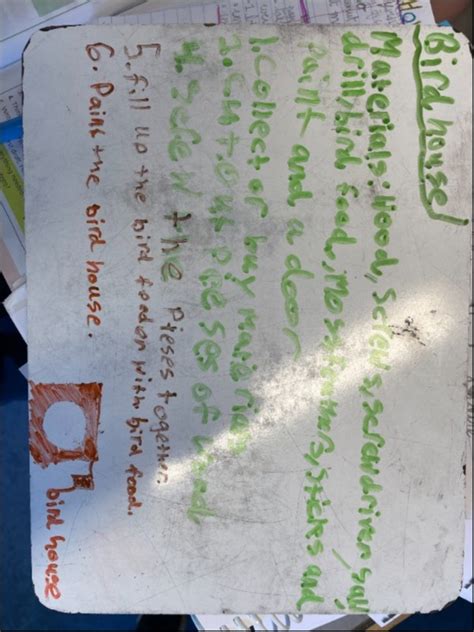 Birdhouse
Materials: Wood, screws, screwdriver, saw,
drill, bird food, moss, feathers, sticks and
paint and a door
1. Collect or buy
2. Cut out pieses of wood
4. Screw the pieses together.
5. fill up the bird feeder with bird food.
6. Paint the bird house.
bird house